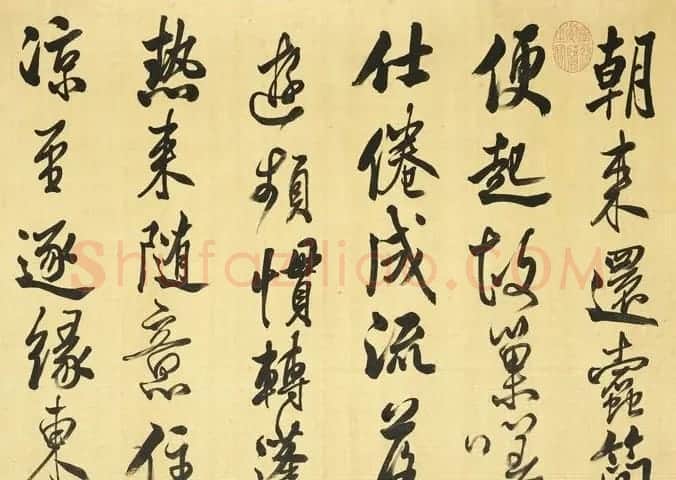 朝來還蠹簡
便起故巢嗟
仕倦成流落
遊頻慣轉蓬
熱來隨意住
涼至逐緣東
Shufaziliao.COM